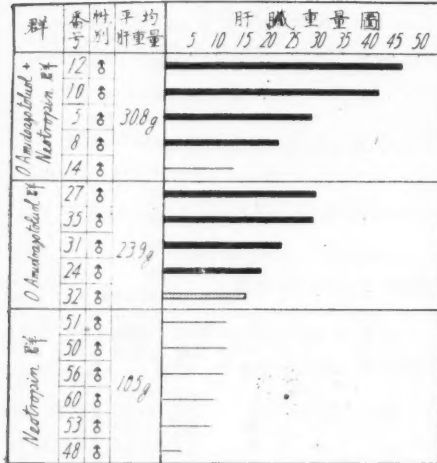 群 番号 性別 平均肝重量 肝臓重量圖
5 10 15 20 25 30 35 40 45 50
O Amidoazotoluol + Neotropin 群
12 ♂
10 ♂
5 ♂
8 ♂
14 ♂
30.8g
O Amidoazotoluol 群
27 ♂
35 ♂
31 ♂
24 ♂
32 ♂
23.9g
Neotropin 群
51 ♂
50 ♂
56 ♂
60 ♂
53 ♂
48 ♂
10.5g